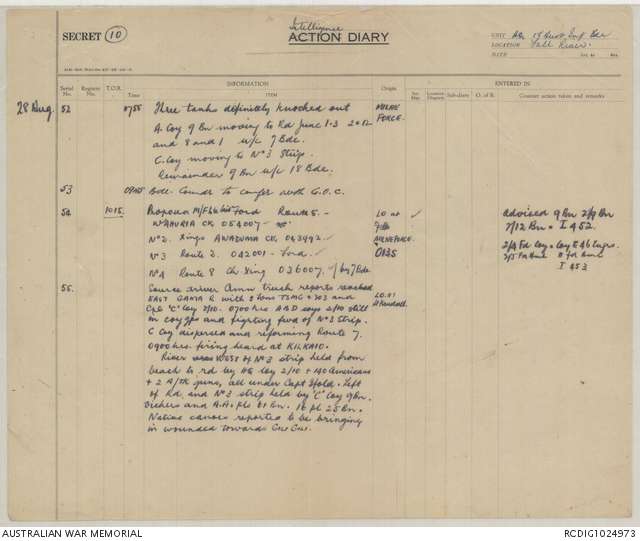 SECRET (10)
Intelligence
ACTION DIARY
UNIT HQ 18 Aust Inf Bde
LOCATION
DATE
INFORMATION
ENTERED IN
Serial No.
Register No.
T.O.R.
Time
ITEM
Origin
Sit. Map
Location Diagram
Sub-diary
O. of B.
Counter action taken and remarks
28 Aug.
52
0755
Three tanks definitely knocked out
MILNE FORCE.
A Coy 9 Bn moving to Rd junc
and 8 and 1 u/c 7 Bde.
C Coy moving to No 3 Strip.
Remainder 9 Bn u/c 18 Bde.
53
Bde. Comdr to confer with G.O.C.
54
1015
Ford Route 5 -
WAHURIA CK. 054007 -
LO at
MILNE FORCE
0135
No 2. Xings AWADUMA CK, 043992 ✓
No 3 Route 2. 042001 - Ford. ✓
No 4 Route 8 Ck Xing 036007. by 7 Bde
advised 9 Bn 2/9 Bn
2/12 Bn = I 452.
I 453
55.
Source driver Amn truck reports reached
EAST GAMA R with 2 tons TSMG + 303 and
Cpl "C" Coy 2/10. 0700 hrs A & D says 2/10 still
in coy gps and fighting fwd of No 3 Strip.
C Coy dispersed and reforming Route 7.
0900 hrs. firing heard at KILKAIO.
River WEST of No 3 strip held from
beach to rd by HQ Coy 2/10 + 140 Americans
+ 2 A/TK guns, all under Capt Ifold. Left
of Rd, and No 3 strip held by 'C' Coy 9 Bn.
Vickers and A.A. Pls 61 Bn. 16 Pl 25 Bn.
Native canoes reported to be bringing
in wounded towards Gili Gili.
AUSTRALIAN WAR MEMORIAL
RCDIG1024973